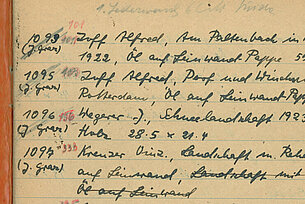 101
1. Lederwand 6 Licht
1093 Zoff Alfred, Am Paltenbach in
(J. Graz) 1922, Öl auf Leinwand Pappe 5
1095 Zoff Alfred, Dorf und Windm
(J. Graz) Rotterdam, Öl auf Leinwand Papp
1096 136 Wegerer J., Schneelandschaft 1923
(J. Graz) Holz 28.5 x 21.4
1097 Kreuzer Vinz., Landschaft m. Reh
(J. Graz) auf Leinwand, Landschaft mit
Öl auf Leinwand